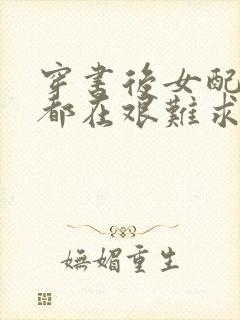 穿書後女配
都在艰難求
嫵媚重生